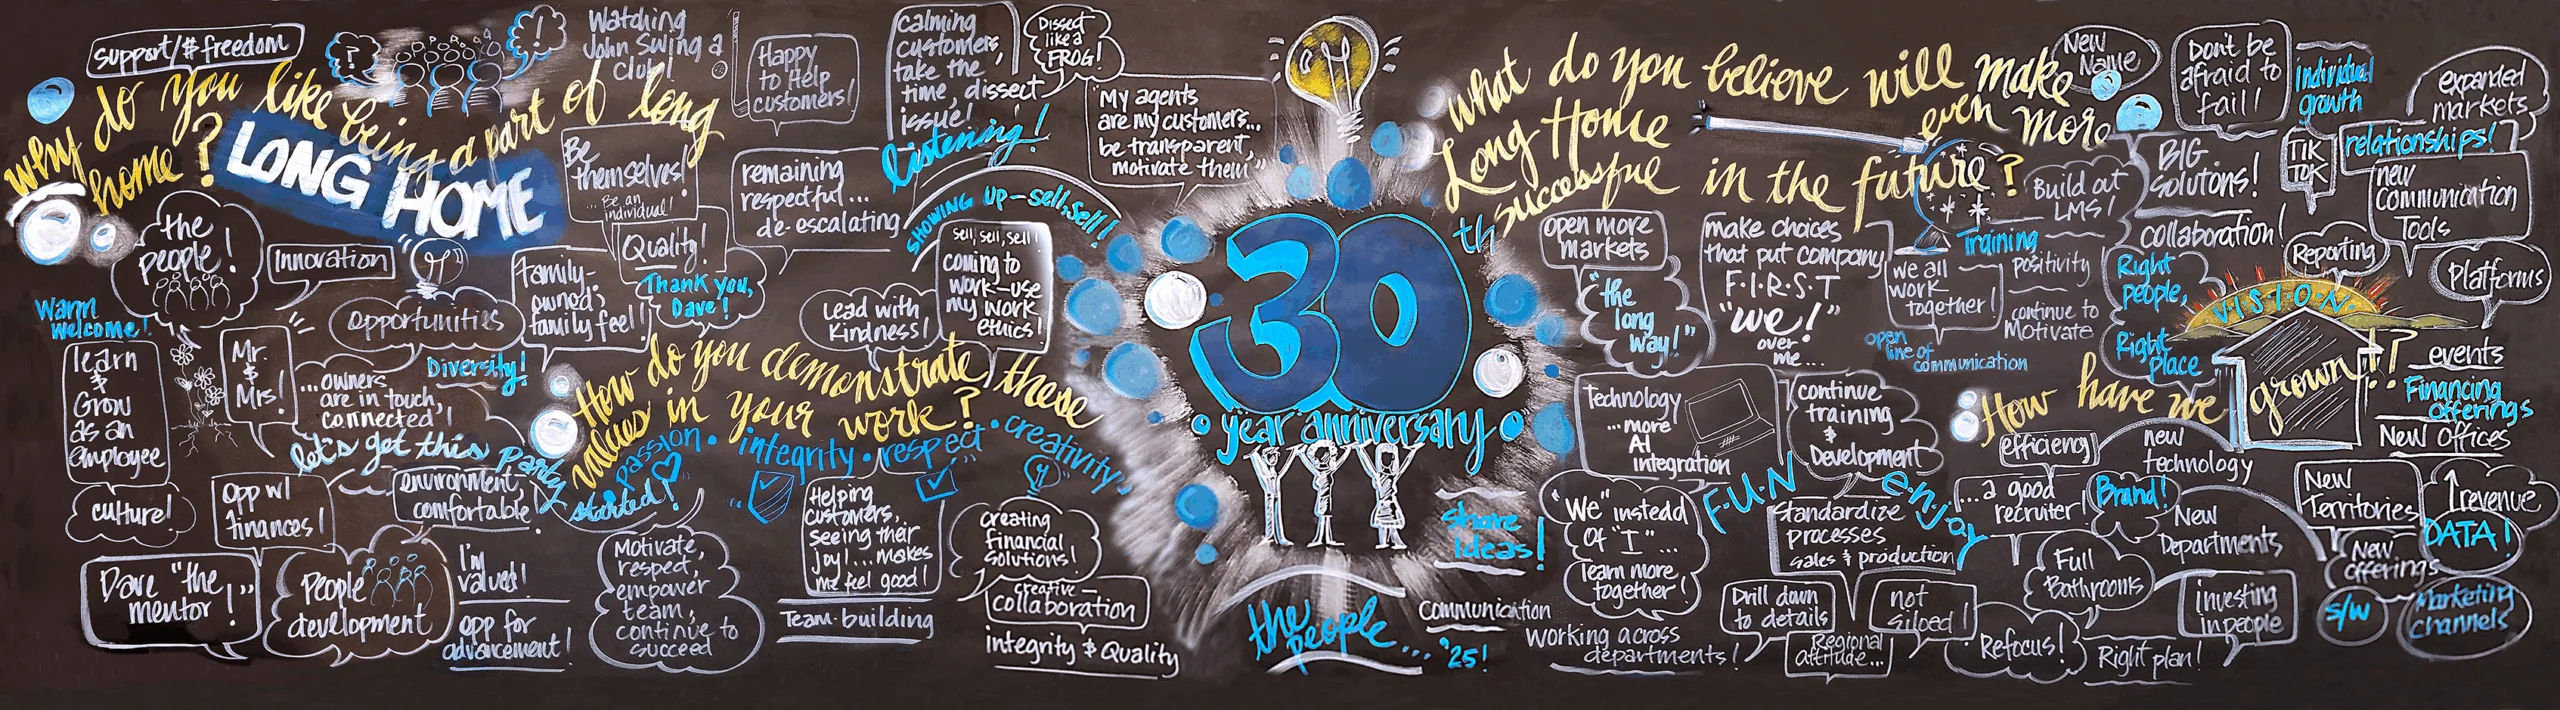 support/$ freedom
?
!
Watching
John Swing a
Club!
why do you like being a part of long
home?
LONG HOME
the
people!
Innovation
opportunities
Warm
welcome!
learn
&
Grow
as an
employee
Mr.
&
Mrs!
...owners
are in touch,
connected!
Diversity!
let's get this party
started!
culture!
opp w/
finances!
environment,
comfortable
Dave "the
mentor!"
People
development
I'm
valued!
opp for
advancement!
Be
themselves!
...Be an
individual!
Quality!
family-
owned;
family feel!
Thank you,
Dave!
Happy
to Help
customers!
calming
customers,
take the
time, dissect
issue!
Dissect
like a
FROG!
listening!
"My agents
are my customers...
be transparent,
motivate them,"
remaining
respectful...
de-escalating
SHOWING UP-sell, sell!
sell, sell, sell!
coming to
work-use
my work
ethics!
Lead with
kindness!
How do you demonstrate these
values in your work?
passion • integrity • respect • creativity
Helping
customers,
seeing their
joy!...makes
me feel good!
Motivate,
respect,
empower
team,
continue to
succeed
Team-building
creating
financial
solutions!
creative-
collaboration
integrity & Quality
30th
year anniversary
the
people...
share
ideas!
Communication
'25!
What do you believe will make
Long Home even more
successful in the future?
New
Name
Don't be
afraid to
fail!
Individual
growth
expanded
markets
relationships!
BIG
solutions!
TIK
TOK
new
Communication
Tools
Build out
LMS!
collaboration!
Reporting
Platforms
open more
markets
make choices
that put company
F.I.R.S.T
"we!"
over
me...
we all
work
together!
Training
positivity
continue to
Motivate
Right
people,
Right
place
"the
long
way!"
open
line of
communication
Technology
...more
AI
integration
continue
training
&
Development
F.U.N
enjoy
"We" instead
of "I"...
learn more
together!
standardize
processes
sales & production
Drill down
to details
not
siloed!
Regional
attitude...
Working across
departments!
VISION
How have we grown!?
events
Financing
offerings
New Offices
efficiency
new
technology
...a good
recruiter!
Brand!
New
Departments
New
Territories
↑ revenue
DATA!
Full
Bathrooms
New
offerings
Refocus!
Right plan!
investing
in people
s/w
Marketing
channels